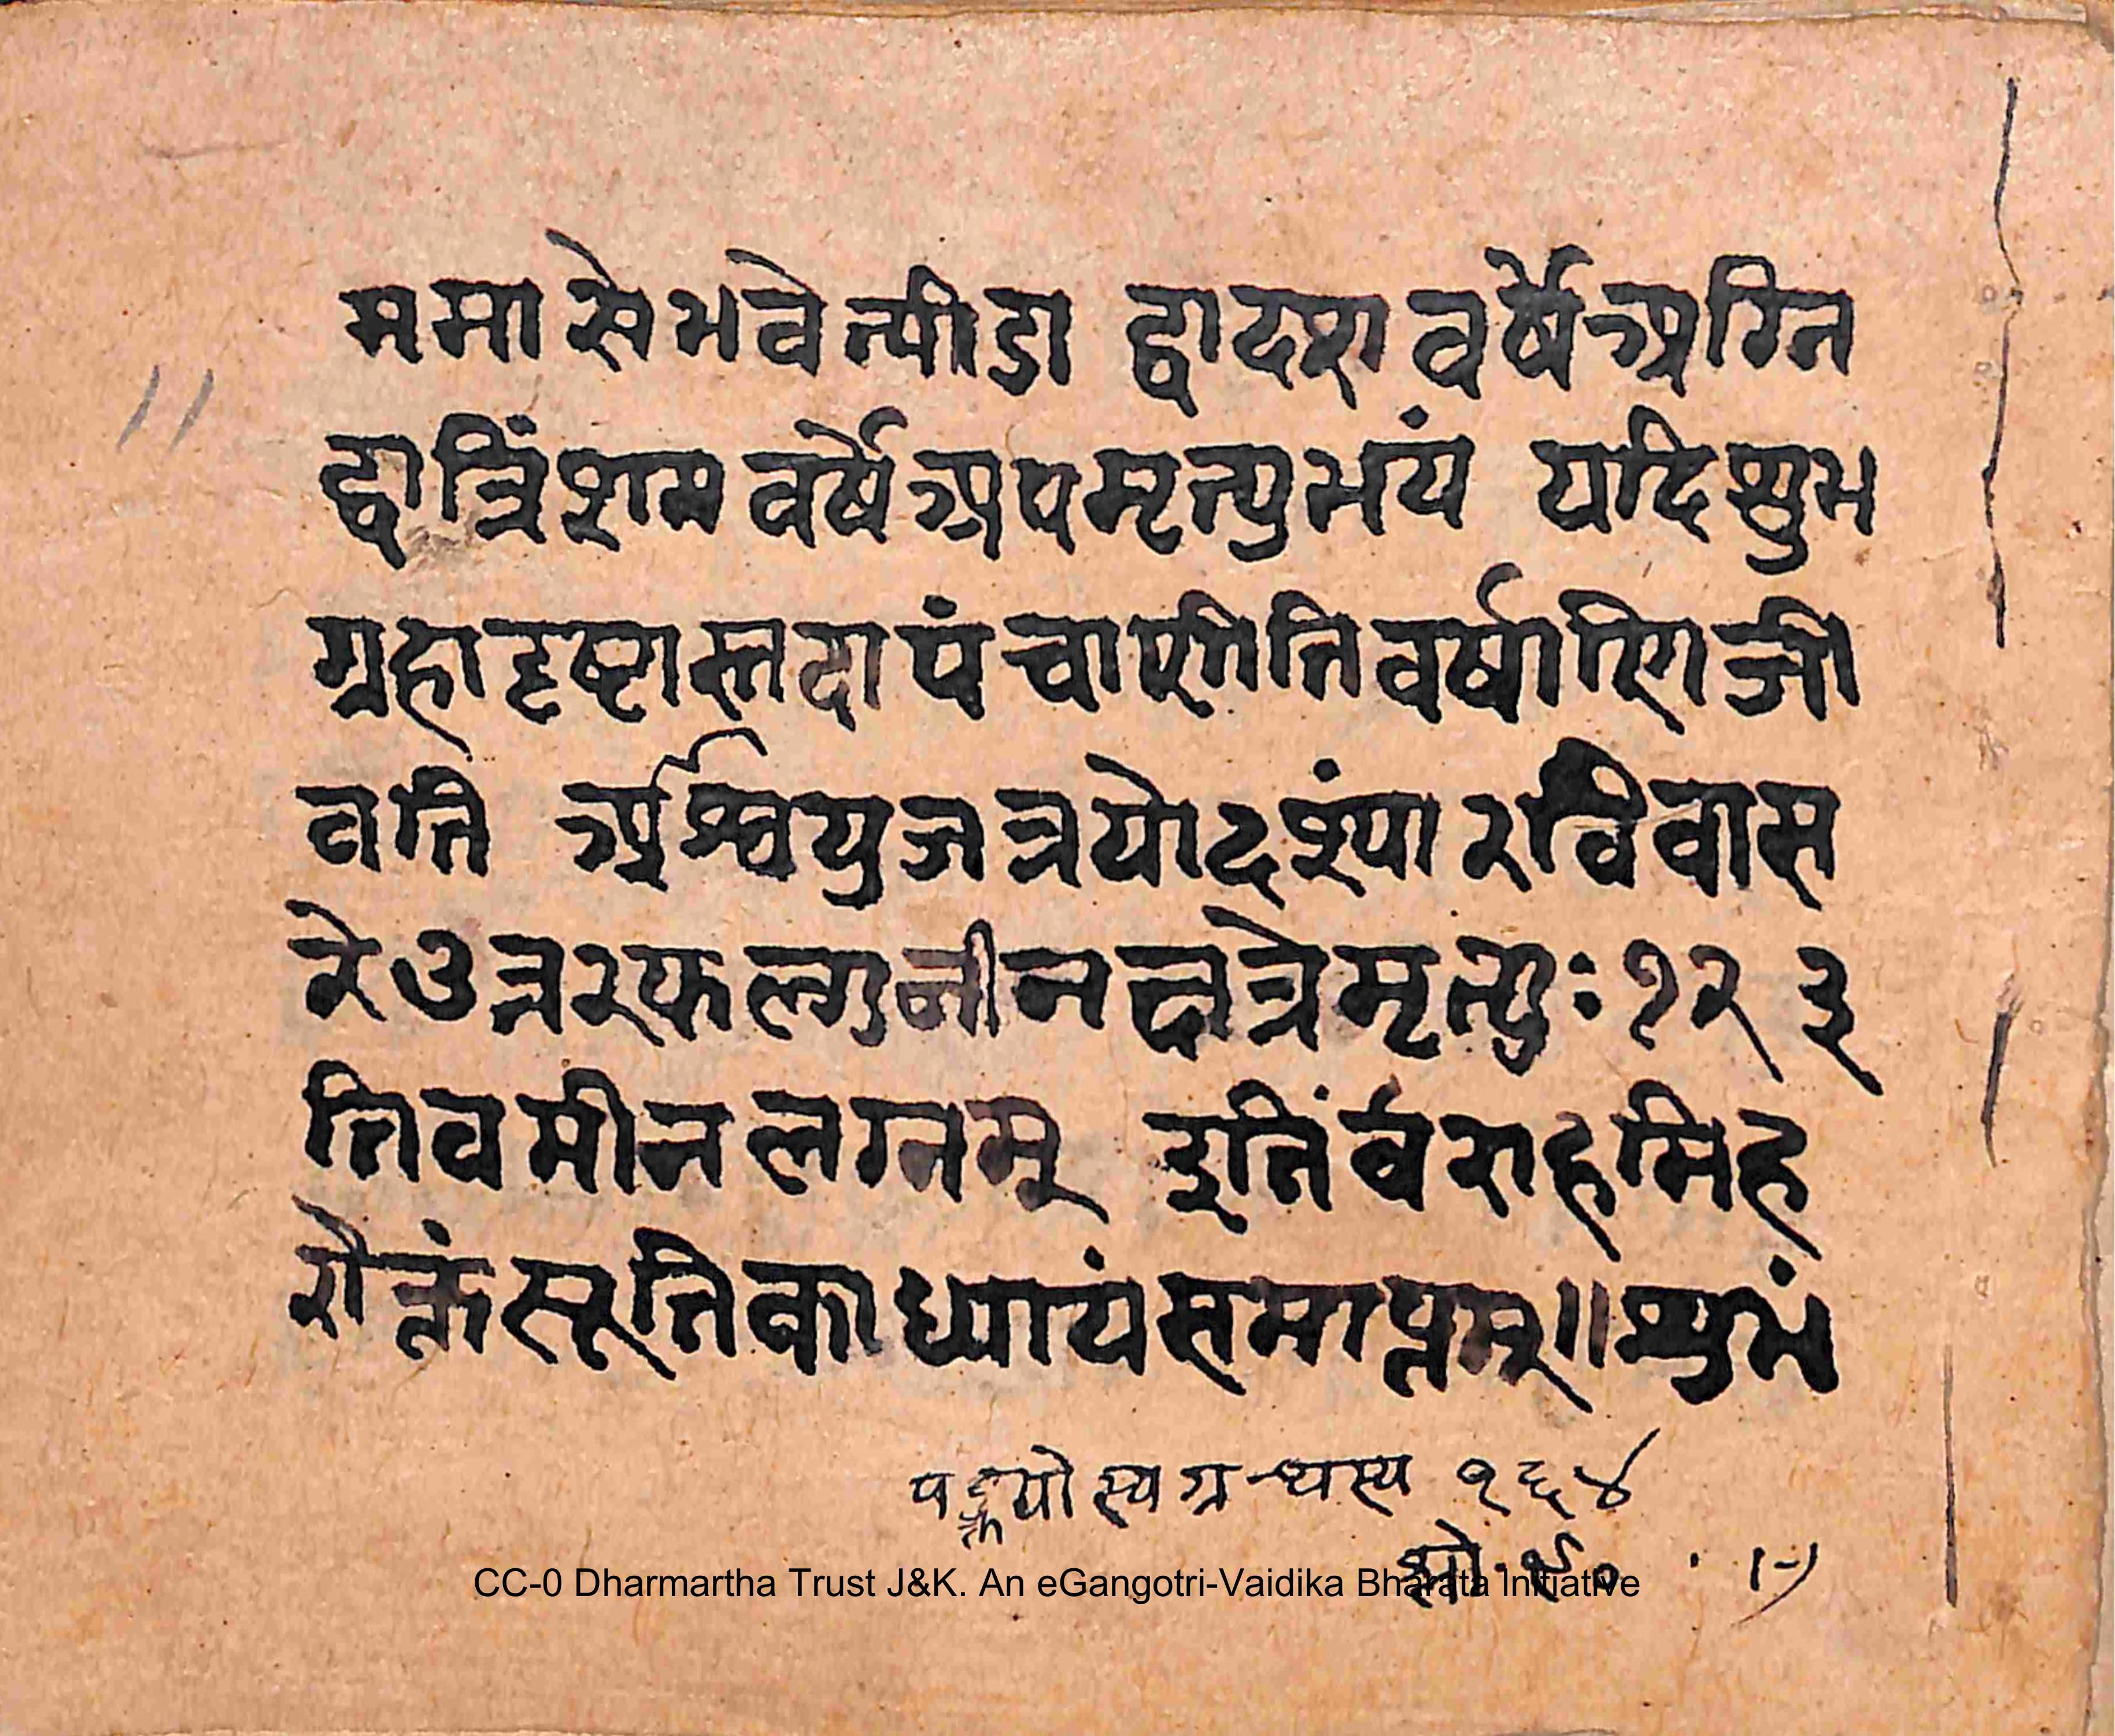 ममासे भवेत्पीडा द्वादश वर्षे अग्नि
द्वात्रिंशम वर्षे अपमृत्युभयं यदि शुभ
ग्रहादृष्टास्तदा पंचाशीति वर्षाणि जी
वति अर्श्वयुज त्रयोदश्ंया रविवास
रे उत्तरफल्गुनी नक्षत्रे मृत्युः १२३
त्तिव मीन लग्नम् इतिं र्वराहमिह
रोक्तं सूतिकाध्यायं समाप्तम् ॥ शुभं
पङ्क्तयोस्य ग्रन्थस्य १६४
श्लो॰ ९०
CC-0 Dharmartha Trust J&K. An eGangotri-Vaidika Bharata Initiative